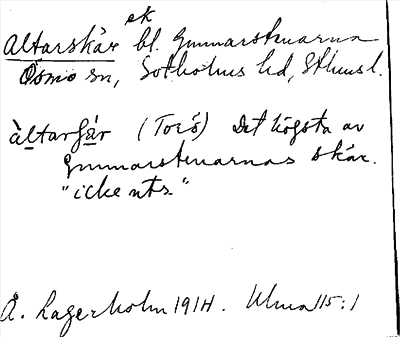 ek
Altarskär bl. Gunnarstenarna
Ösmo sn, Sotholms hd, Sthms l.
àltarʃä̀r (Torö) Det högsta av
Gunnarstenarnas skär.
"icke uts."
Å. Lagerholm 1914. Ulma 115:1